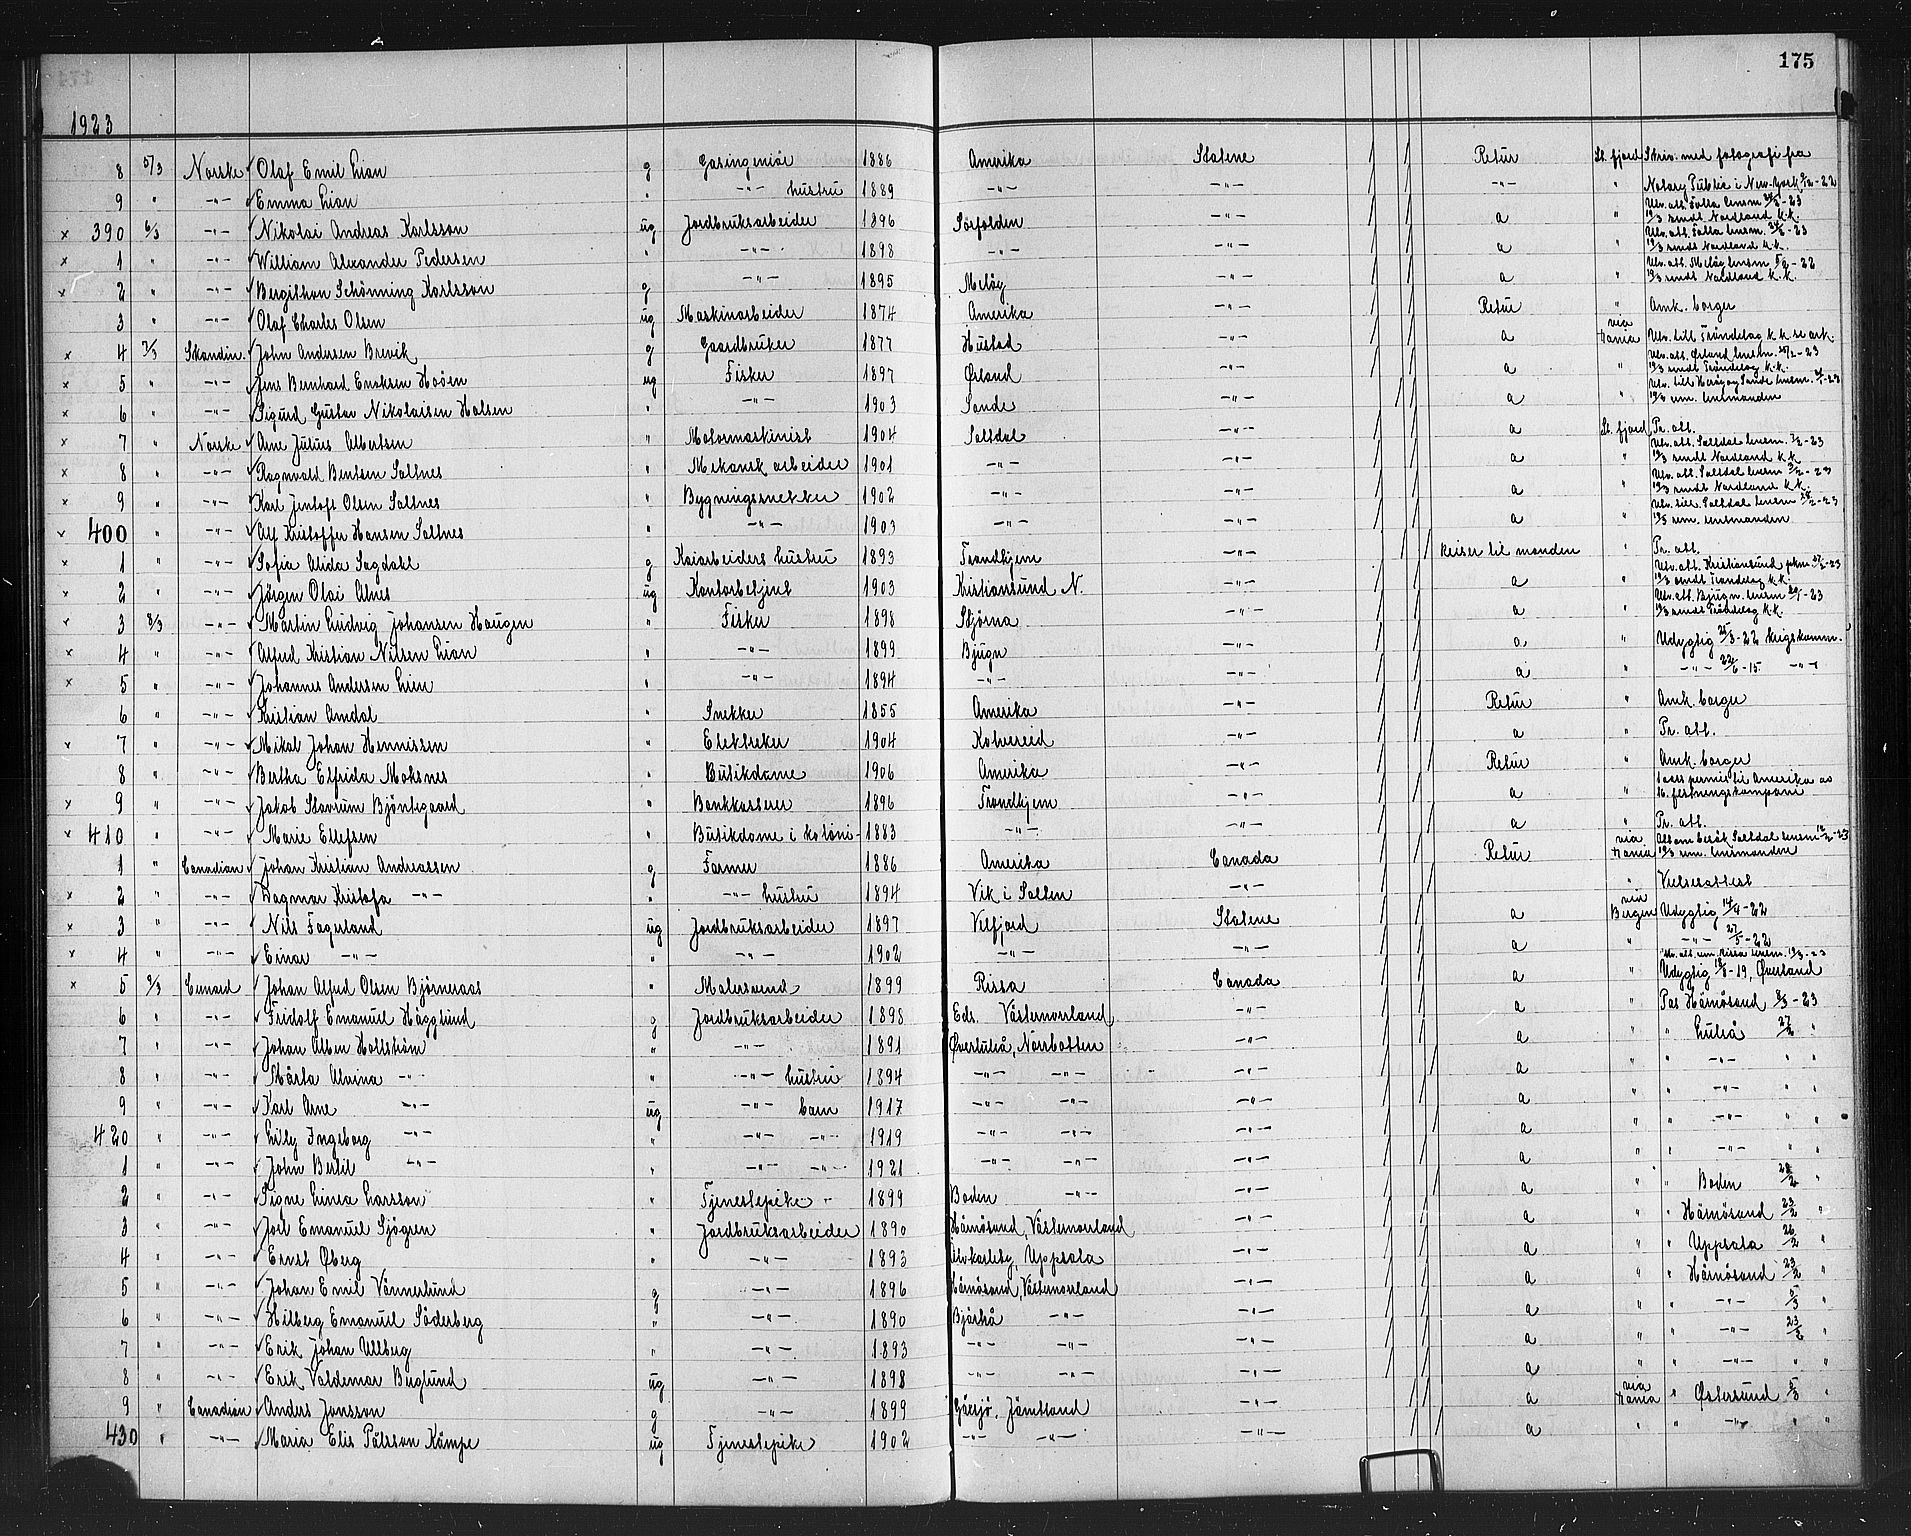 175
1923
8 5/3 Norske Olaf Emil Lian g Gasingeniör 1886 Amerika Statene Retur St. fjord Skriv. med fotografi fra
9 " -"- Emma Lian " -"- hustru 1889 -"- -"- -"- " Notary Public i New-York 9/12-22
x 390 6/3 -"- Nikolai Andreas Karlsson ug Jordbruksarbeider 1896 Sörfolden -"- a " 19/3 sendt Nordland k.k.
x 1 " -"- William Alexander Pedersen " -"- 1898 -"- -"- a " 19/3 sendt Nordland k.k.
x 2 " -"- Bergithon Schönning Karlsson g -"- 1895 Melöy -"- a " 19/3 sendt Nordland k.k.
3 " -"- Olaf Charles Olsen ug Maskinarbeider 1874 Amerika -"- Retur " Amk. borger
x 4 7/3 Skandin. John Andersen Brevik g Gaardbruker 1877 Hustad -"- a via Hania Utv. till Tröndelag k.k. se ark.
x 5 " -"- Jens Bernhard Enoksen Hoöen ug Fisker 1897 Ørland -"- a " 19/3 sendt Tröndelag k.k.
x 6 " -"- Sigurd Gustav Nikolaisen Halsen " -"- 1903 Sande -"- a " 19/3 um. lensmanden
x 7 " Norske Arne Julius Albertsen " Motormaskinist 1904 Saltdal -"- a St. fjord Pr. att.
x 8 " -"- Ragnvald Bentsen Saltnes " Mekanisk arbeider 1901 -"- -"- a " 19/3 sendt Nordland k.k.
x 9 " -"- Karl Jentoft Olsen Saltnes " Bygningssnekker 1902 -"- -"- a " 19/3 sendt Nordland k.k.
x 400 " -"- Alf Kristoffer Hansen Saltnes " -"- 1903 -"- -"- a " 19/3 um. lensmanden
x 1 " -"- Sofia Alida Sagdahl g Kaiarbeiders hustru 1893 Trondhjem -"- Reiser til manden " Pr. att.
x 2 " -"- Jörgen Olai Alnes ug Kontorbetjent 1903 Kristiansund N. -"- a " 19/3 sendt Tröndelag k.k.
x 3 8/3 -"- Martin Ludvig Johansen Haugen " Fisker 1898 Stjørna -"- a " 19/3 sendt Tröndelag k.k.
x 4 " -"- Alfred Kristian Nilsen Lian " -"- 1899 Bjugn -"- a " Udygtig 25/3-22 krigskomm.
x 5 " -"- Johannes Andersen Lien " -"- 1894 -"- -"- a " -"- 22/6-15 -"-
6 " -"- Kristian Amdal " Snekker 1855 Amerika -"- Retur " Amk. borger
x 7 " -"- Mikal Johan Hennissen " Elektriker 1904 Kolvereid -"- a " Pr. att.
8 " -"- Bertha Elfrida Moksnes " Butikdame 1906 Amerika -"- Retur " Amk. borger
x 9 " -"- Jakob Stavrum Bjöntegaard " Bankkasserer 1896 Trondhjem -"- a " 1 aars permis til Amerika av 16. festningskompani
x 410 " -"- Marie Ellefsen " Butikdame i koloni- 1883 -"- -"- a " Pr. att.
1 " Canadian Johan Kristian Andreassen g Farmer 1886 Amerika Canada Retur via Hania 19/3 um. lensmanden
x 2 " -"- Dagmar Kristofa -"- " -"- hustru 1894 Vik i Salten -"- " Vielseattest
x 3 " -"- Nils Fagerland ug Jordbruksarbeider 1897 Velfjord Statene a via Bergen Udygtig 14/4-22
x 4 " -"- Einar -"- " -"- 1902 -"- -"- a " -"- 27/5-22
x 5 9/3 Cunard Johan Alfred Olsen Björneraas " Malersvend 1899 Rissa Canada a " Udygtig 19/8-19, Överland
6 " -"- Fridolf Emanuel Hägglund g Jordbruksarbeider 1898 Eds. Västernorrland -"- a " Pas Härnösand 8/3-23
7 " -"- Johan Alben Hallström " -"- 1891 Øverluleå, Norrbotten -"- a " " Luleå 27/2 "
8 " -"- Märta Alvina -"- " -"- hustru 1894 -"- -"- -"- a " " -"- " "
9 " -"- Karl Arne -"- ug -"- barn 1917 -"- -"- -"- a " " -"- " "
420 " -"- Lilly Ingeborg -"- " -"- -"- 1919 -"- -"- -"- a " " -"- " "
1 " -"- John Bertil -"- " -"- -"- 1921 -"- -"- -"- a " " -"- " "
2 " -"- Signe Linea Larsson " Tjenestepike 1899 Boden -"- -"- a " " Boden 28/2 "
3 " -"- Joel Emanuel Sjögren " Jordbruksarbeider 1890 Härnösand, Västernorrland -"- a " " Härnösand 23/2 "
4 " -"- Ernst Øberg " -"- 1893 Älvkarleby, Uppsala -"- a " " Uppsala 26/2 "
5 " -"- Johan Emil Vännerlund g -"- 1896 Härnösand, Västernorrland -"- a " " Härnösand 23/2 "
6 " -"- Hilberg Emanuel Söderberg " -"- 1890 Bjärtrå -"- -"- a " " -"- 5/3
7 " -"- Erik Johan Ullberg " -"- 1893 -"- -"- -"- a " " -"- 23/2 "
8 " -"- Erik Valdemar Berglund ug -"- 1898 -"- -"- -"- a " " -"- " "
9 " Canadian Anders Jonsson g -"- 1899 Gåxsjö, Jämtland -"- a via Hania " Östersund 5/3 "
430 " -"- Maria Elis Pålsson Kämpe ug Tjenestepike 1902 -"- -"- -"- a " " -"- " "